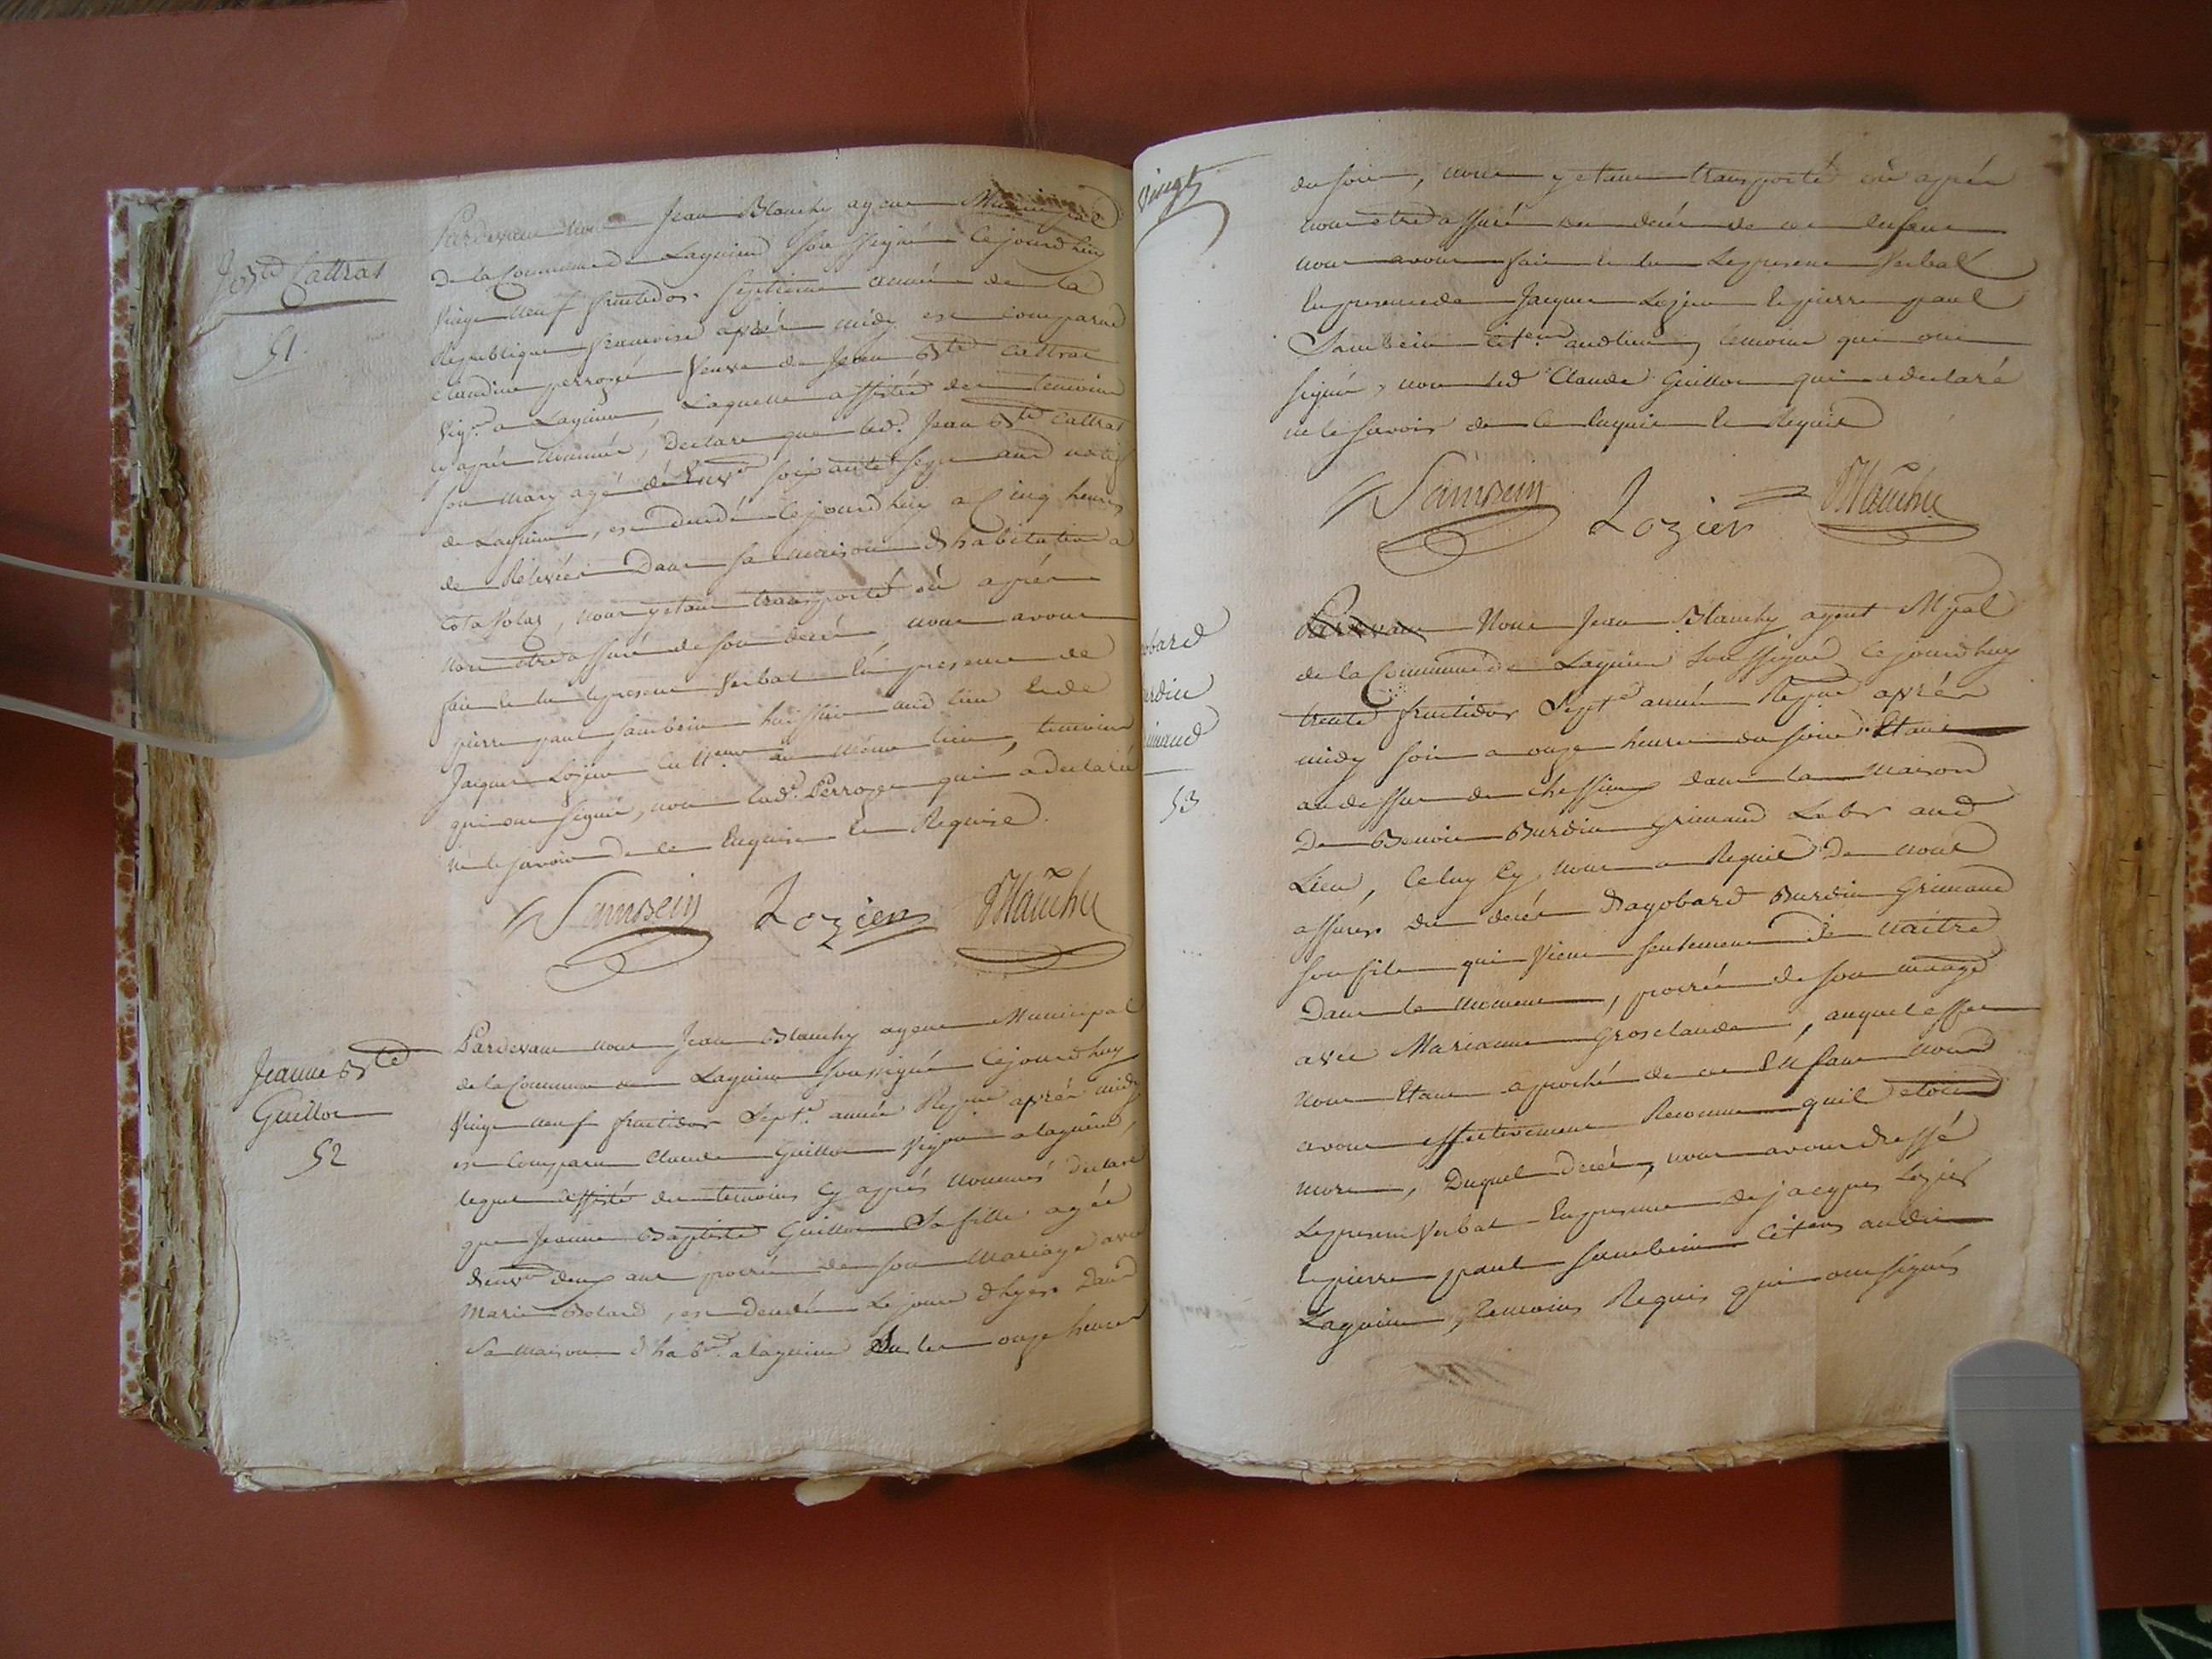 Jn Bte Cattrat
51
Pardevant Nous Jean Blanchy agent Municipal
De la Commune de Lagnieu Soussigné Cejourd'huy
Vingt neuf fructidor septieme année de la
Republique francoise aprés midy est Comparue
Claudine perrozé Veuve de Jean Bte Cattrat
Vigon a Lagnieu, Laquelle assistée des temoins
cy aprés Nommés, Declare que led. Jean Bte Cattrat
son mary agé d'Envon soixante seize ans natif
de Lagnieu, est decedé Cejourd'huy a Cinq heures
de Relevée Dans sa maison d'habitation a
nous y étant transporté où aprés
Nous etre assuré de son decés, nous avons
fait et lu le present Verbal En presence de
pierre paul sambein huissier aud lieu Et de
Jacques Lozier Cultteur au même lieu, temoins
qui ont signé, non lad. Perroze qui a declaré
ne le savoir de ce Enquise et Requise.
Sambein Lozier Blanchy
Jeanne Bte
Guillot
52
Pardevant nous Jean Blanchy agent Municipal
de la Commune de Lagnieu soussigné Cejourd'huy
Vingt neuf fructidor Sept. année Repne aprés midy
est Comparu Claude Guillot Vigon a lagnieu,
lequel assisté des temoins Cy aprés Nommés declare
que Jeanne Baptiste Guillot Sa fille agée
d'envon deux ans procréé de son Mariage avec
Marie Bolard, est decedée Le jour d'hyer Dans
Sa maison d'habon. a lagnieu Sur les onze heures
Vingt
du soir, nous y etant transporté où aprés
nous etre assuré du decés de cet Enfant
nous avons fait et lu Le present Verbal
En presence de Jacques Lozier Et pierre paul
Sambein citens aud lieu, temoins qui ont
signé, non led Claude Guillot qui a declaré
ne le savoir de ce Enquis et Requis
Sambein Lozier Blanchy
obard
urdin
imaud
53
Pardevant Nous Jean Blanchy agent Mpal
de la Commune de Lagnieu Soussigné Cejourd'huy
trente fructidor Septe année Repne aprés
midy soit a onze heures du soir Etant
au dessus de Chessieux dans la Maison
De Benoit Burdin Grimaud Labr aud
Lieu, Celuy Cy, nous a Requis De nous
assurer du decés Dagobard Burdin Grimaud
son fils qui Vient seulement de naitre
Dans le moment, procréé de son maage
avec Marianne Grosclaude, auquel effet
nous Etant aproché de cet Enfant Nous
avons effectivement Reconnu quil etoit
mort, Duquel decés, nous avons dressé
Le present Verbal En presence de jacques Lozier
Et pierre paul sambein Citens audit
Lagnieu, temoins Requis qui ont signés